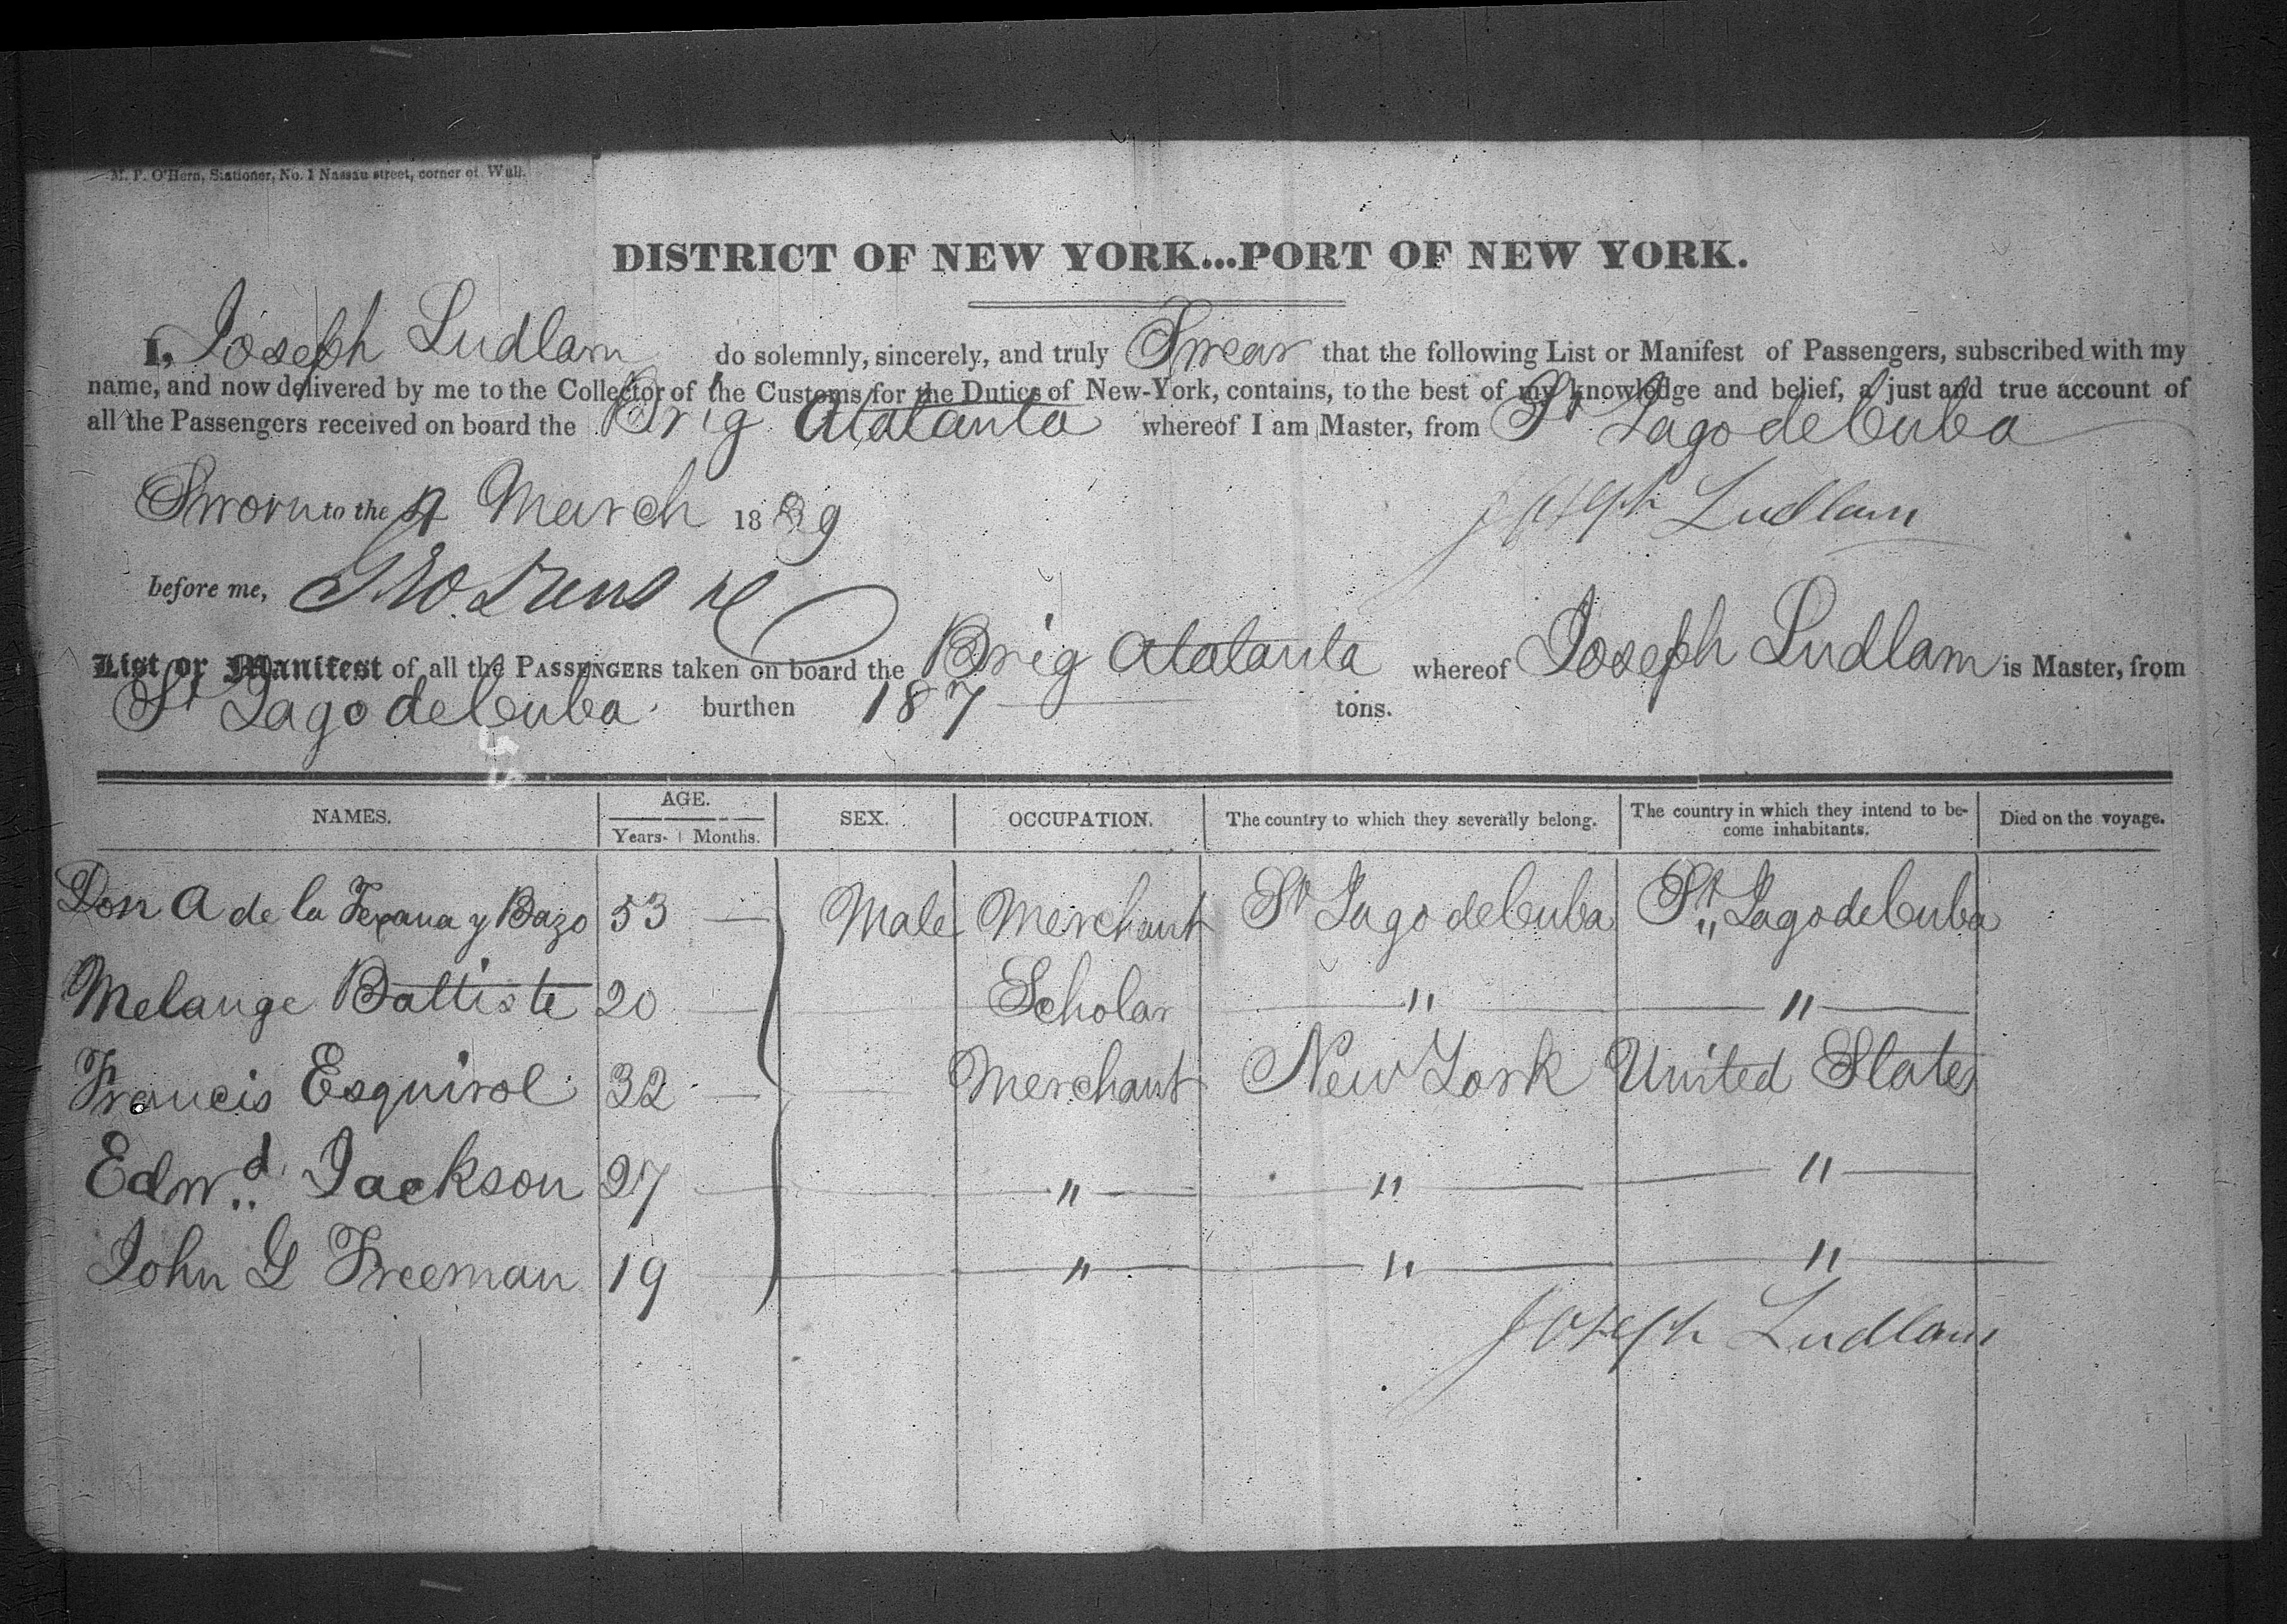 M. P. O'Hern, Stationer, No. 1 Nassau street, corner of Wall.
DISTRICT OF NEW YORK...PORT OF NEW YORK.
I, Joseph Ludlam do solemnly, sincerely, and truly Swear that the following List or Manifest of Passengers, subscribed with my
name, and now delivered by me to the Collector of the Customs for the Duties of New-York, contains, to the best of my knowledge and belief, a just and true account of
all the Passengers received on board the Brig Atalanta whereof I am Master, from St Jago de Cuba
Sworn to the March 1829 Joseph Ludlam
before me,
List or Manifest of all the PASSENGERS taken on board the Brig Atalanta whereof Joseph Ludlam is Master, from
St Jago de Cuba burthen 187 tons.
NAMES. AGE. Years. Months. SEX. OCCUPATION. The country to which they severally belong. The country in which they intend to become inhabitants. Died on the voyage.
Don A de la y Bazo 53 — Male Merchant St Jago de Cuba St Jago de Cuba
Melange Battiste 20 — Scholar — " — — " —
Francis Esquirol 32 — Merchant New York United States
Edwd Jackson 27 — " — " — — " —
John G Freeman 19 — " — " — — " —
Joseph Ludlam